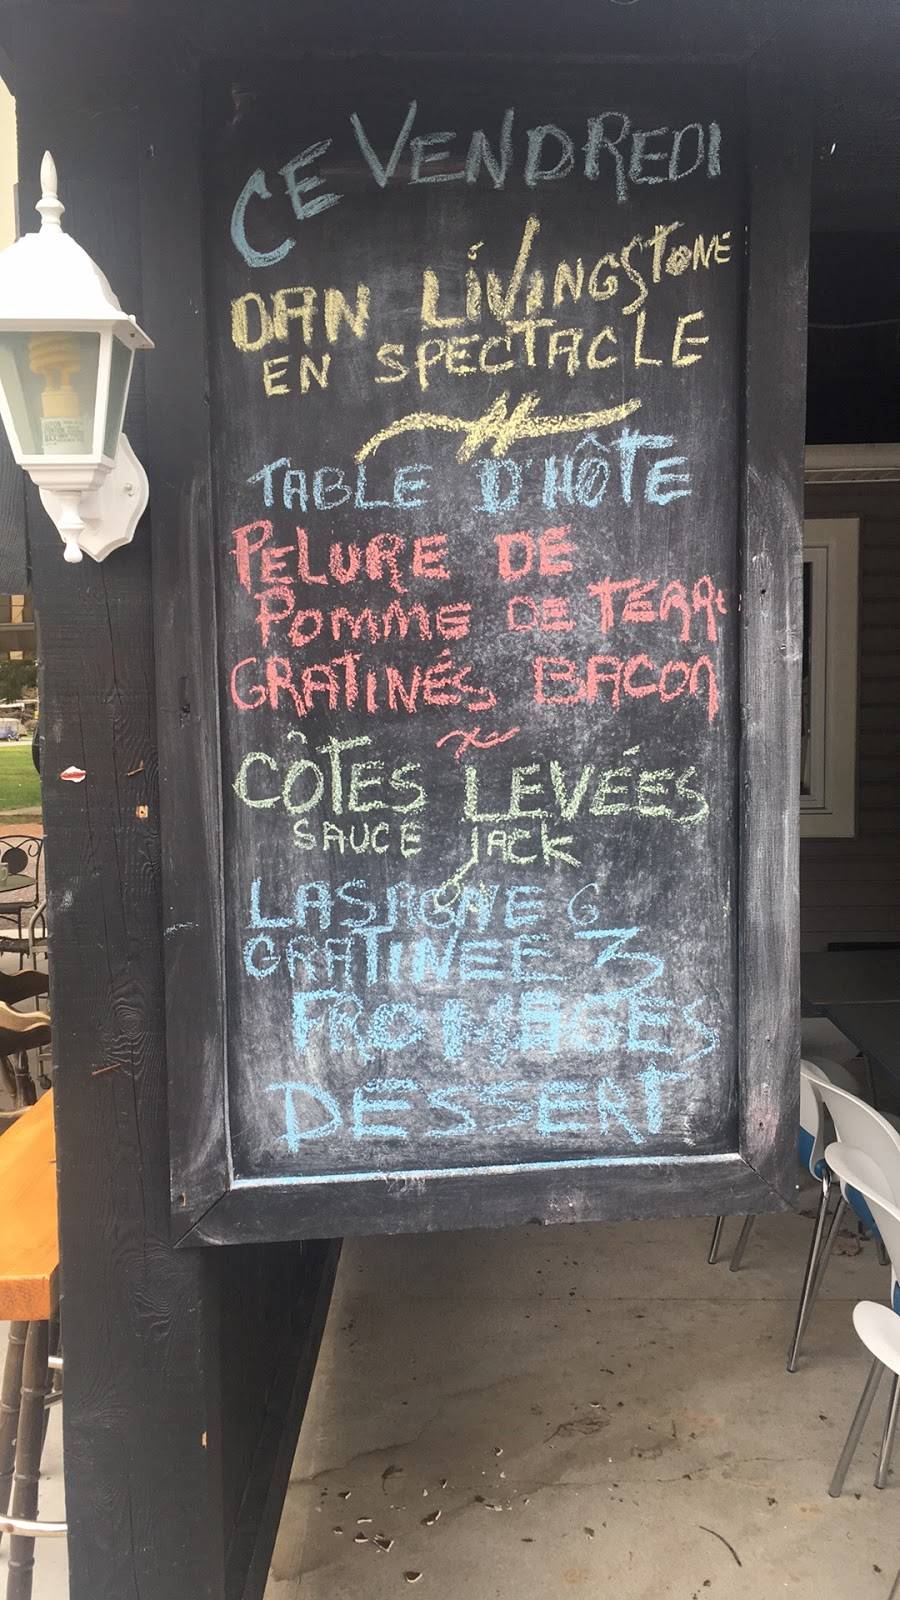 CE VENDREDI
DAN LIVINGSTONE
EN SPECTACLE
TABLE D'HÔTE
PELURE DE
POMME DE TERRE
GRATINÉS BACON
CÔTES LEVÉES
SAUCE JACK
LASAGNE
GRATINEE 3
FROMAGES
DESSERT